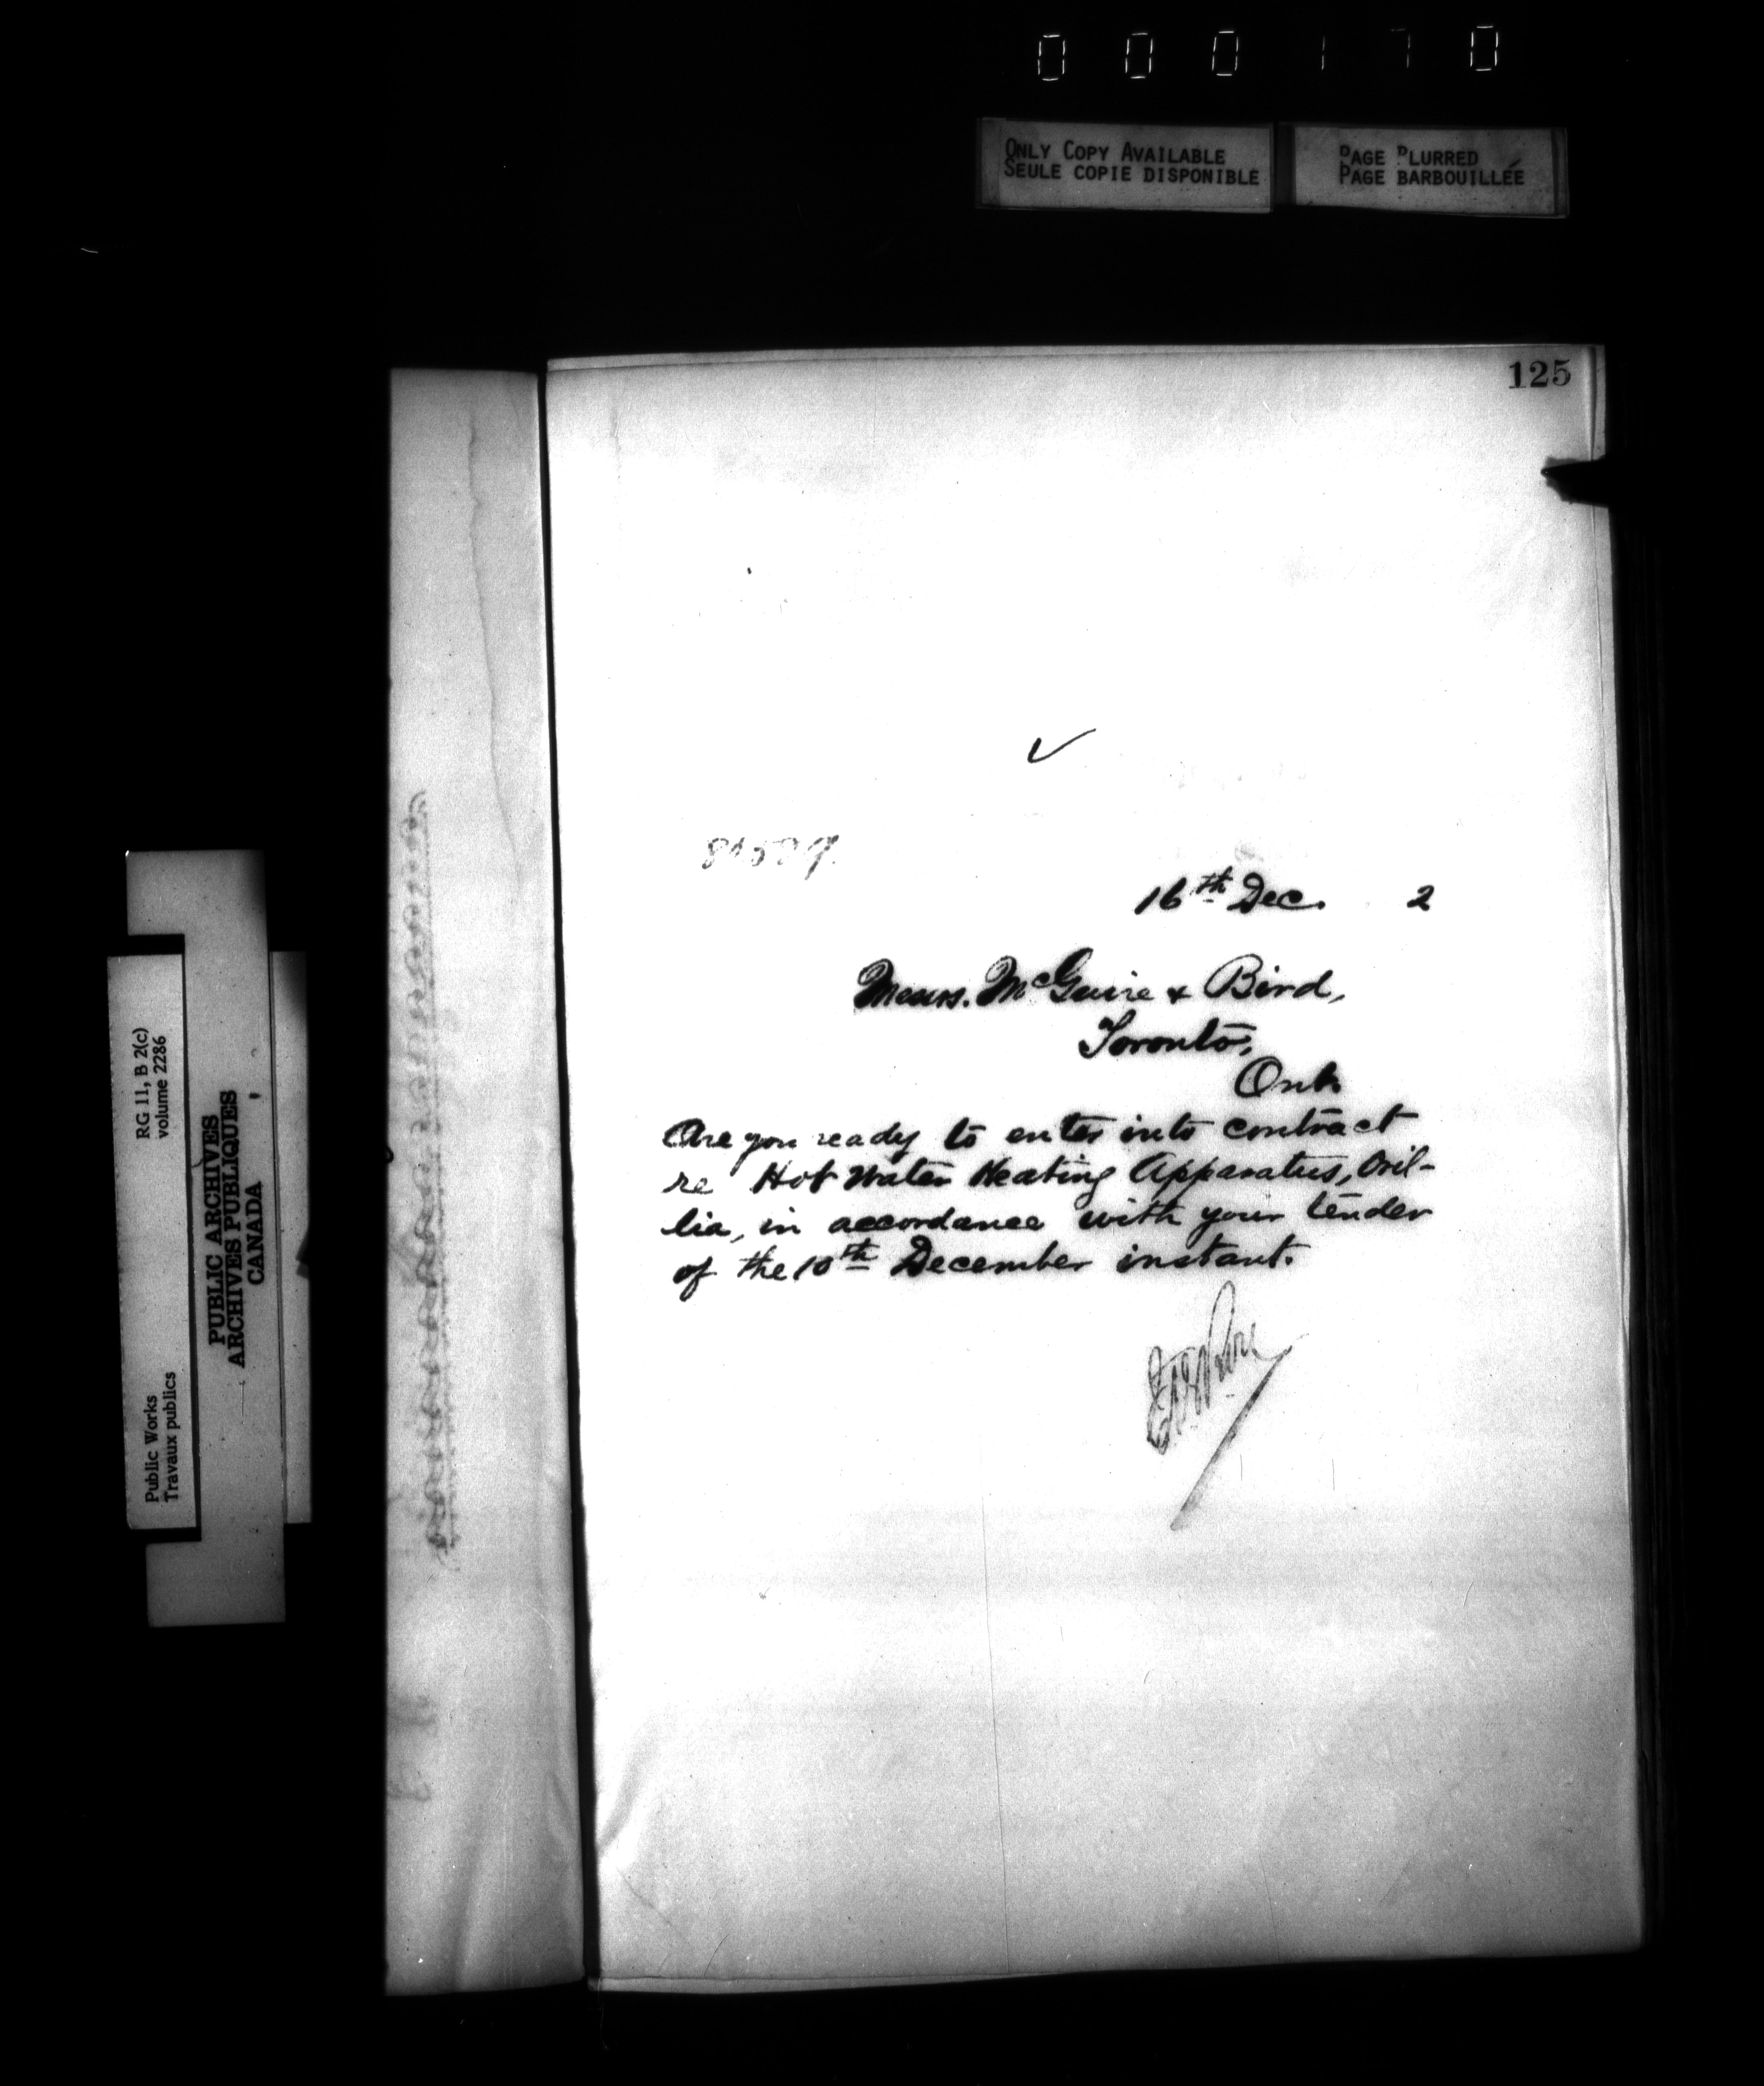 000170
ONLY COPY AVAILABLE
SEULE COPIE DISPONIBLE
PAGE BLURRED
PAGE BARBOUILLÉE
125
16th Dec. 2
Messrs. McGuire & Bird,
Toronto,
Ont.
Are you ready to enter into contract
re Hot Water Heating Apparatus, Oril-
lia, in accordance with your tender
of the 10th December instant.
RG 11, B 2(c)
volume 2286
Public Works
Travaux publics
PUBLIC ARCHIVES
ARCHIVES PUBLIQUES
CANADA